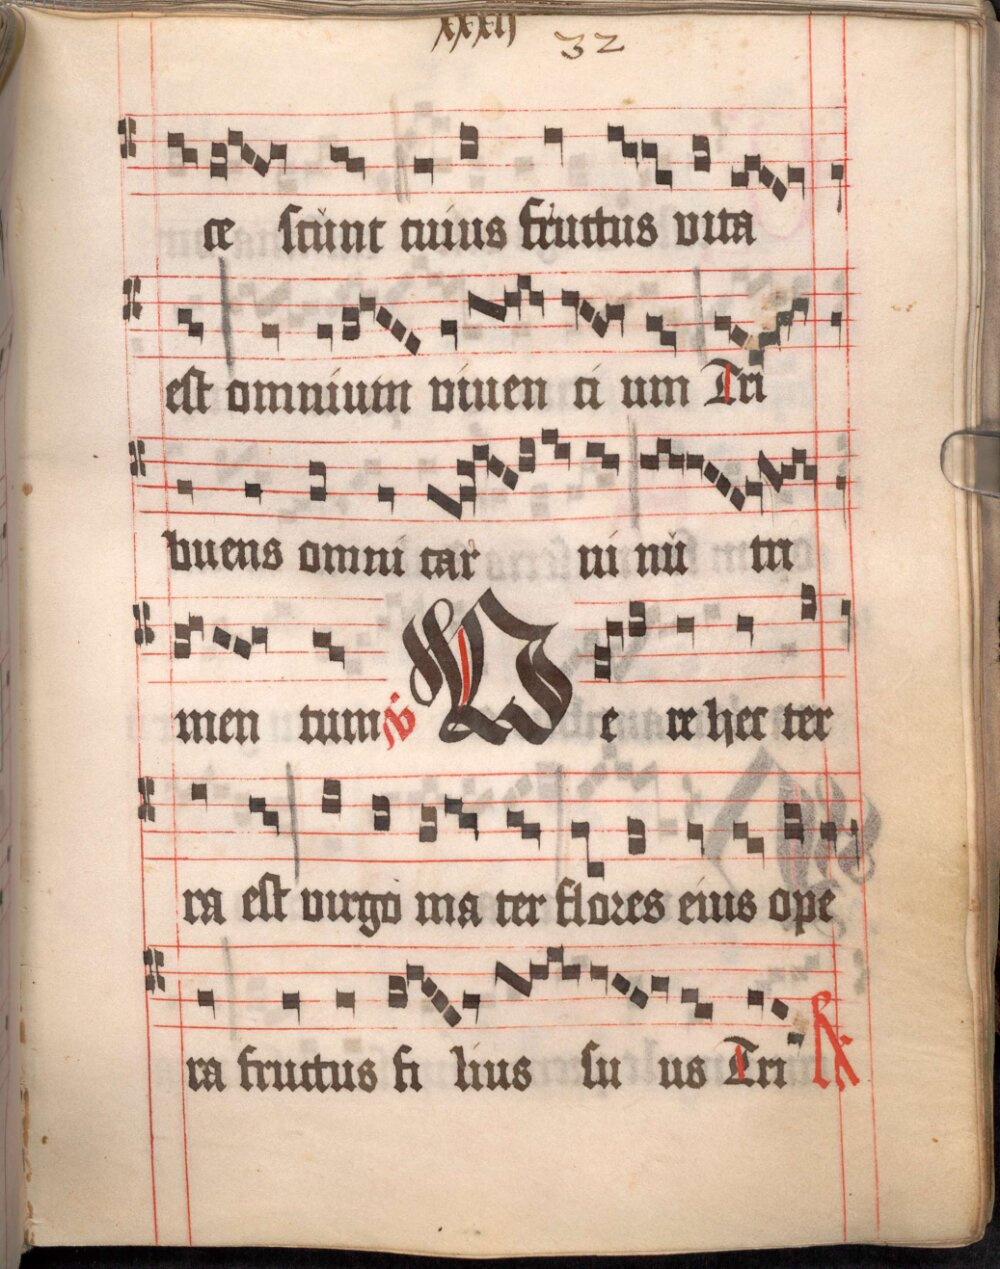 xxxij 32
ce scunt cuius fructus vita
est omnium viuen ti um Tri
buens omni car ni nu tri
men tum V e re hec ter
ra est virgo ma ter flores eius ope
ra fructus fi lius su us Tri